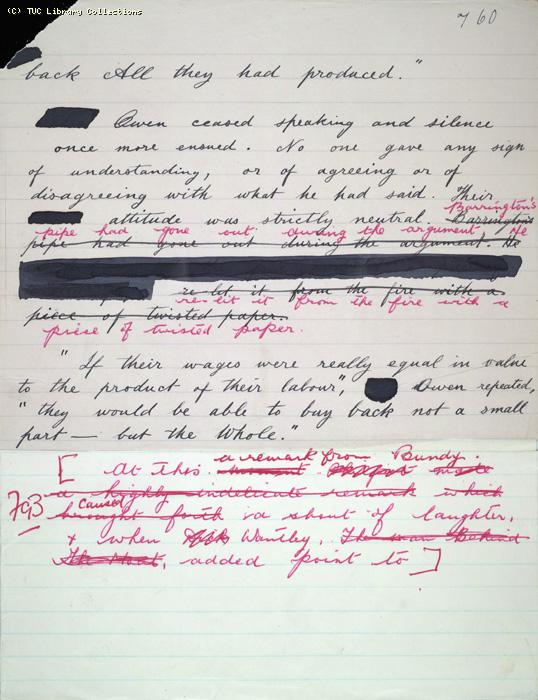 (C) TUC Library Collections
760
back All they had produced."
Owen ceased speaking and silence
once more ensued. No one gave any sign
of understanding, or of agreeing or of
disagreeing with what he had said. Their
attitude was strictly neutral. Barrington's
Barrington's
pipe had gone out during the argument. He
pipe had gone out during the argument. He
re-lit it from the fire with a
re-lit it from the fire with a
piece of twisted paper.
piece of twisted paper.
"If their wages were really equal in value
to the product of their labour", Owen repeated,
"they would be able to buy back not a small
part — but the Whole."
a remark from Bundy.
[ At this made
a highly indelicate remark which
793 caused
brought forth a shout of laughter,
+ when Wantley, The man Behind
The Moat, added point to ]